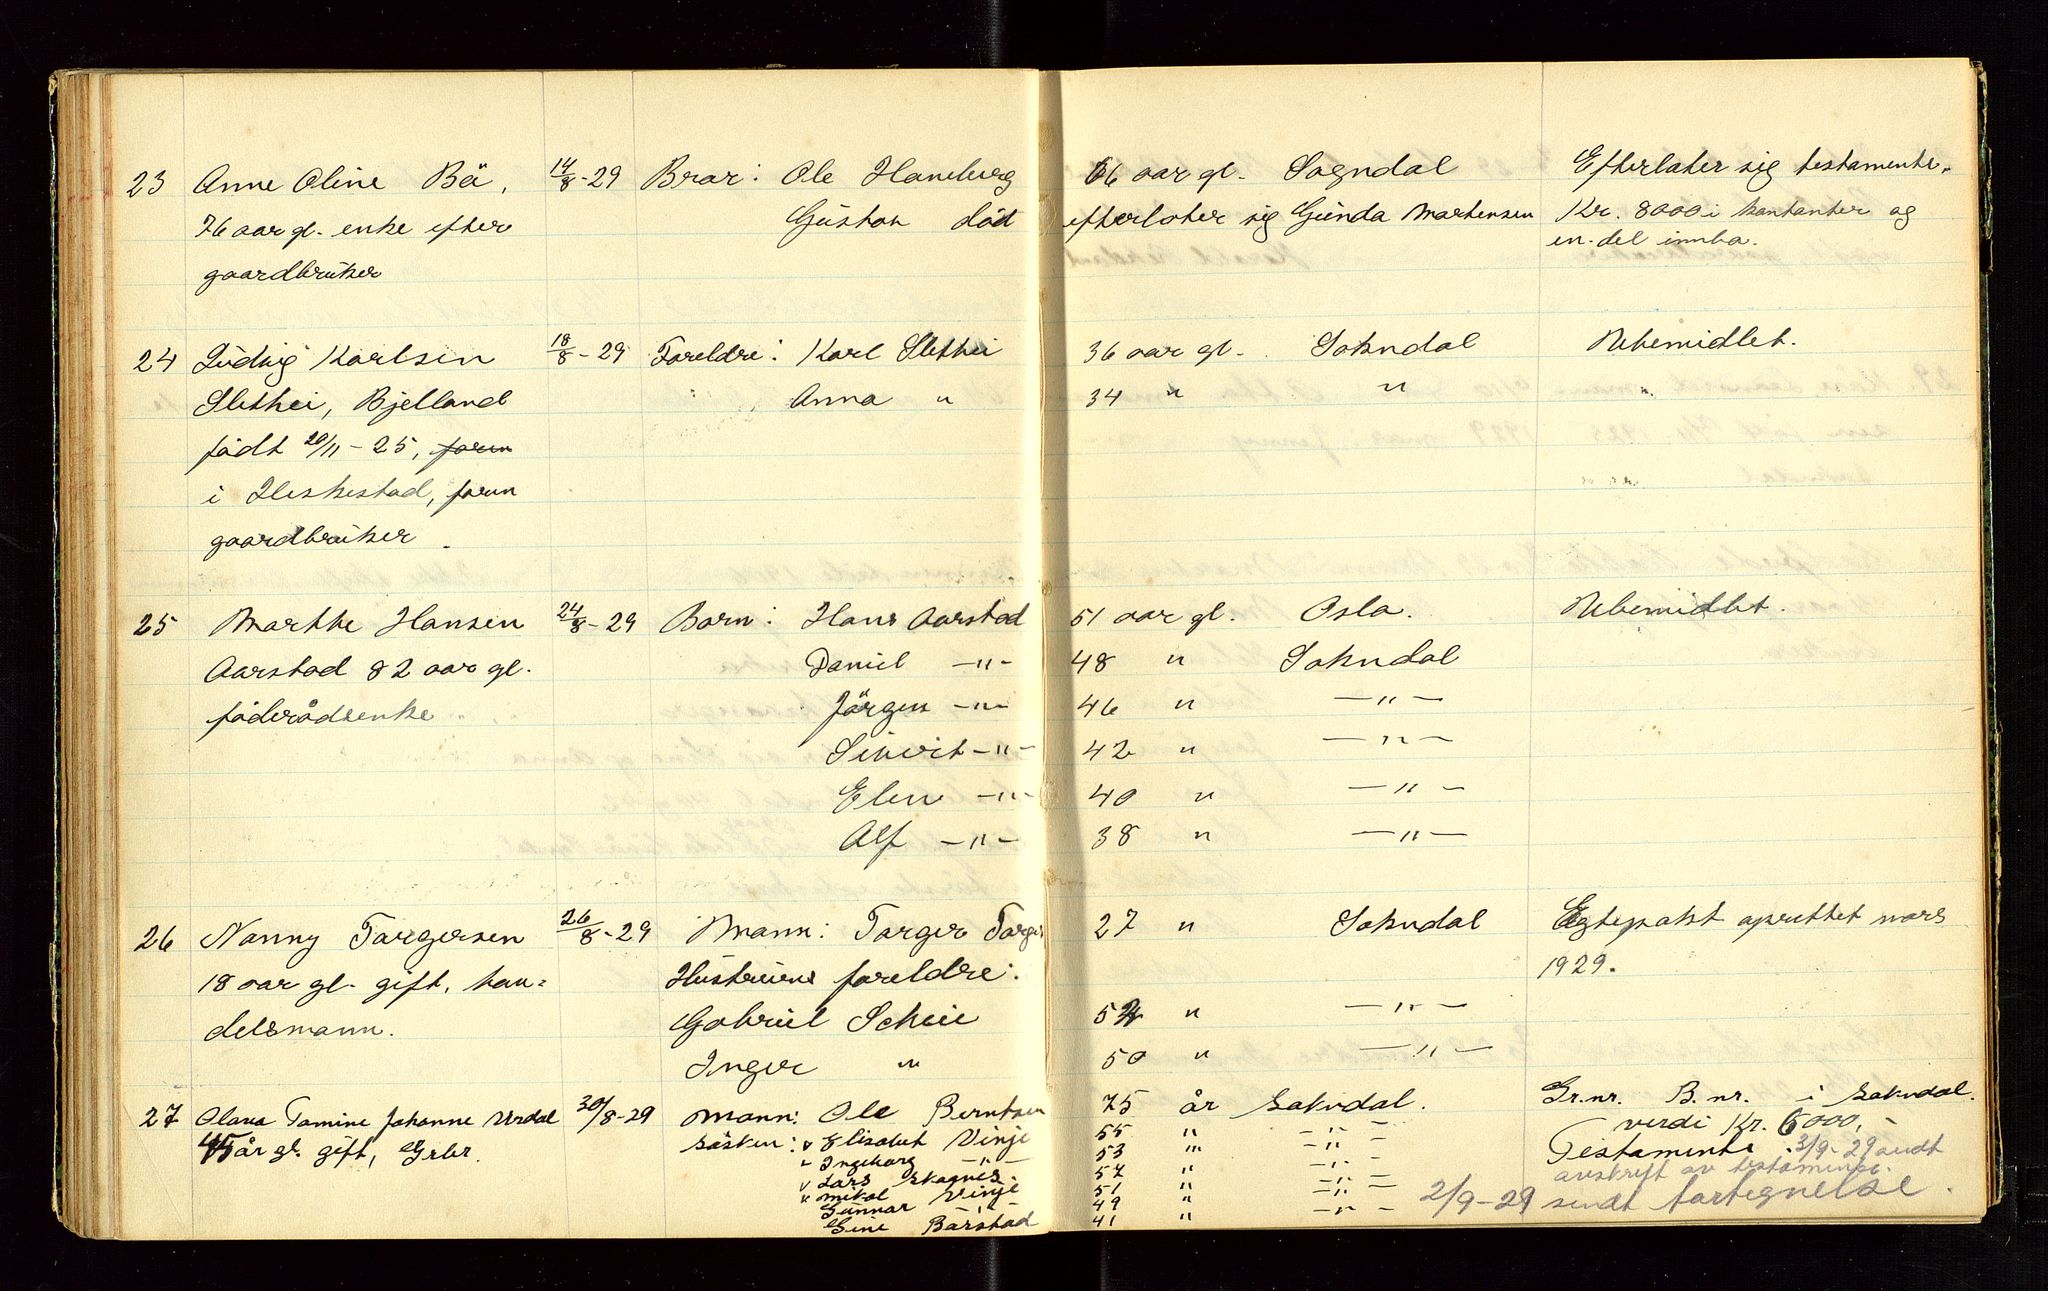 23 Anne Oline Bö, 14/8-29 Bror: Ole Haneberg 66 aar gl. Sogndal Efterlater sig testamente.
76 aar gl. enke efter Gustav död efterlater sig Gunda Martensen Kr. 8000 i kontanter og
gaardbruker en-del innbo.
24 Ludvig Karlsen 18/8-29 Foreldre: Karl Slethei 36 aar gl. Sokndal Ubemidlet.
Slethei, Bjelland Anna " 34 " " "
födt 20/11-25, farm
i Heskestad, farm
gaardbruker.
25 Marthe Hansen 24/8-29 Barn: Hans Aarstad 51 aar gl. Oslo. Ubemidlet.
Aarstad 82 aar gl. Daniel -"- 48 " Sokndal
föderådsenke Jörgen -"- 46 " -"-
Sivert -"- 42 " -"-
Elen -"- 40 " -"-
Alf -"- 38 " -"-
26 Nanny Torgersen 26/8-29 Mann: Torger Torger 27 " Sokndal Egtepakt oprettet mars
18 aar gl. gift, han= Hustruens foreldre: 1929.
delsmann. Gabriel Scheie 52 " -"-
Inger " 50 " -"-
27 Olava Tomine Johanne Urdal 30/8-29 Mann: Ole Berntsen 75 år Sokndal. Gr.nr. B.nr. i Sokndal.
45 år gl. gift, Grbr. Sösken: v Elisabet Vinje 55 " -"- verdi Kr. 6000,-
" Ingeborg -"- 53 " -"- Testamente. 3/9-29 sendt
v Lars Skagnes 52 " -"- avskrift av testamente.
v Mikal Vinje 51 " -"- 2/9-29 sendt fortegnelse.
Gunnar -"- 49 " -"-
Gine Barstad 41 "